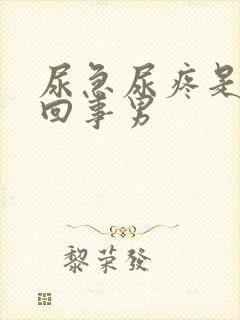 尿急尿疼是
回事男
黎荣發